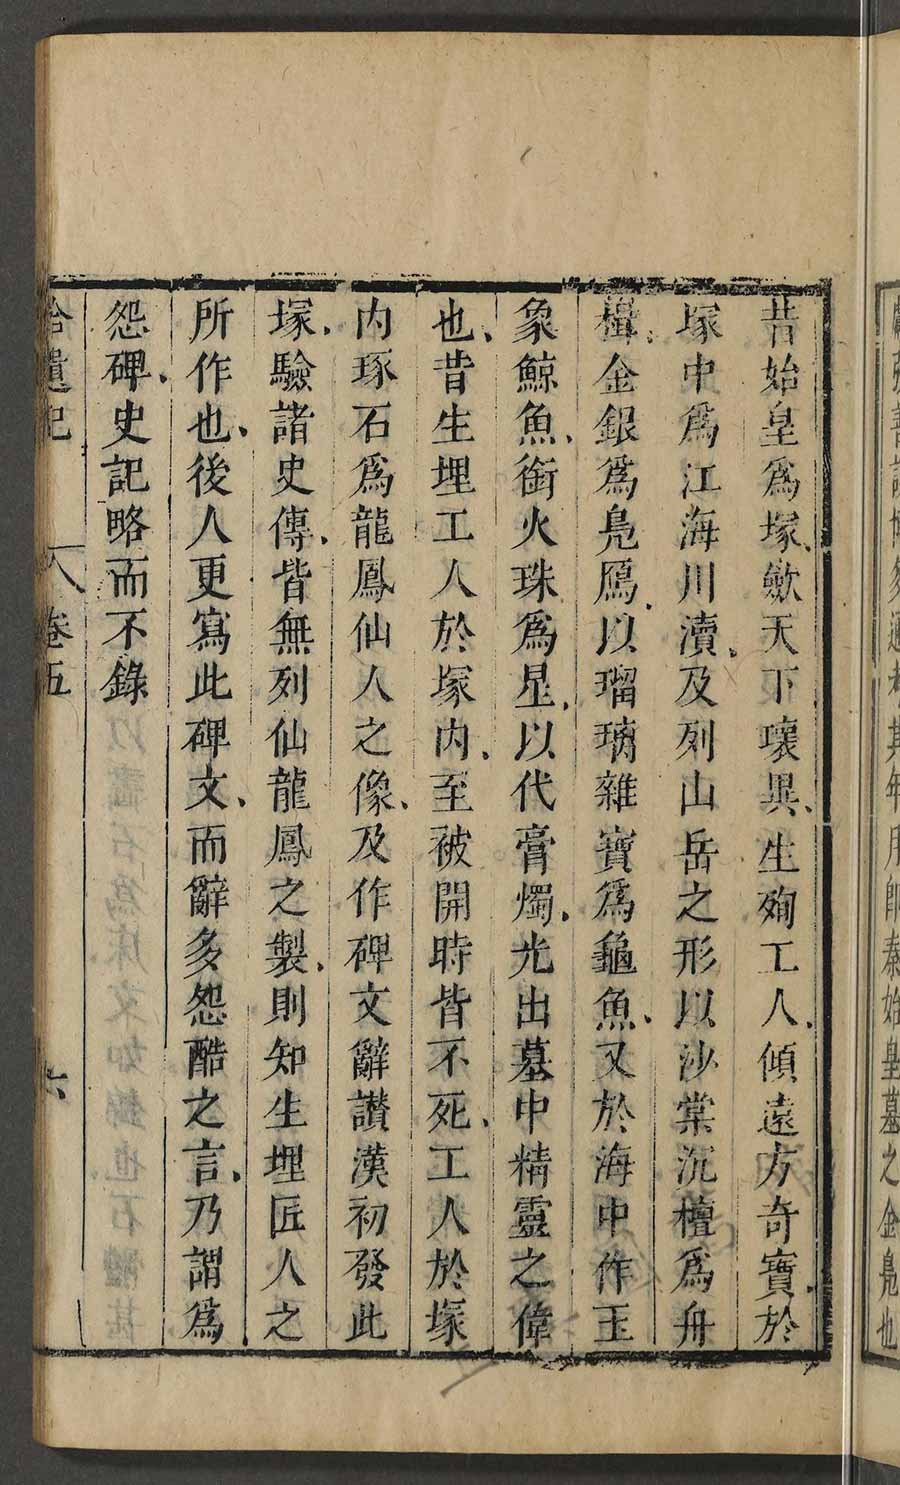 昔始皇爲塚斂天下瓌異生殉工人傾遠方奇寶於
塚中爲江海川瀆及列山岳之形以沙棠沉檀爲舟
楫金銀爲鳧鴈以瑠璃雜寶爲龜魚又於海中作玉
象鯨魚銜火珠爲星以代膏燭光出墓中精靈之偉
也昔生埋工人於塚內至被開時皆不死工人於塚
內琢石爲龍鳳仙人之像及作碑文辭讃漢初發此
塚驗諸史傳皆無列仙龍鳳之製則知生埋匠人之
所作也後人更寫此碑文而辭多怨酷之言乃謂爲
怨碑史記略而不錄
拾遺記 卷五 六